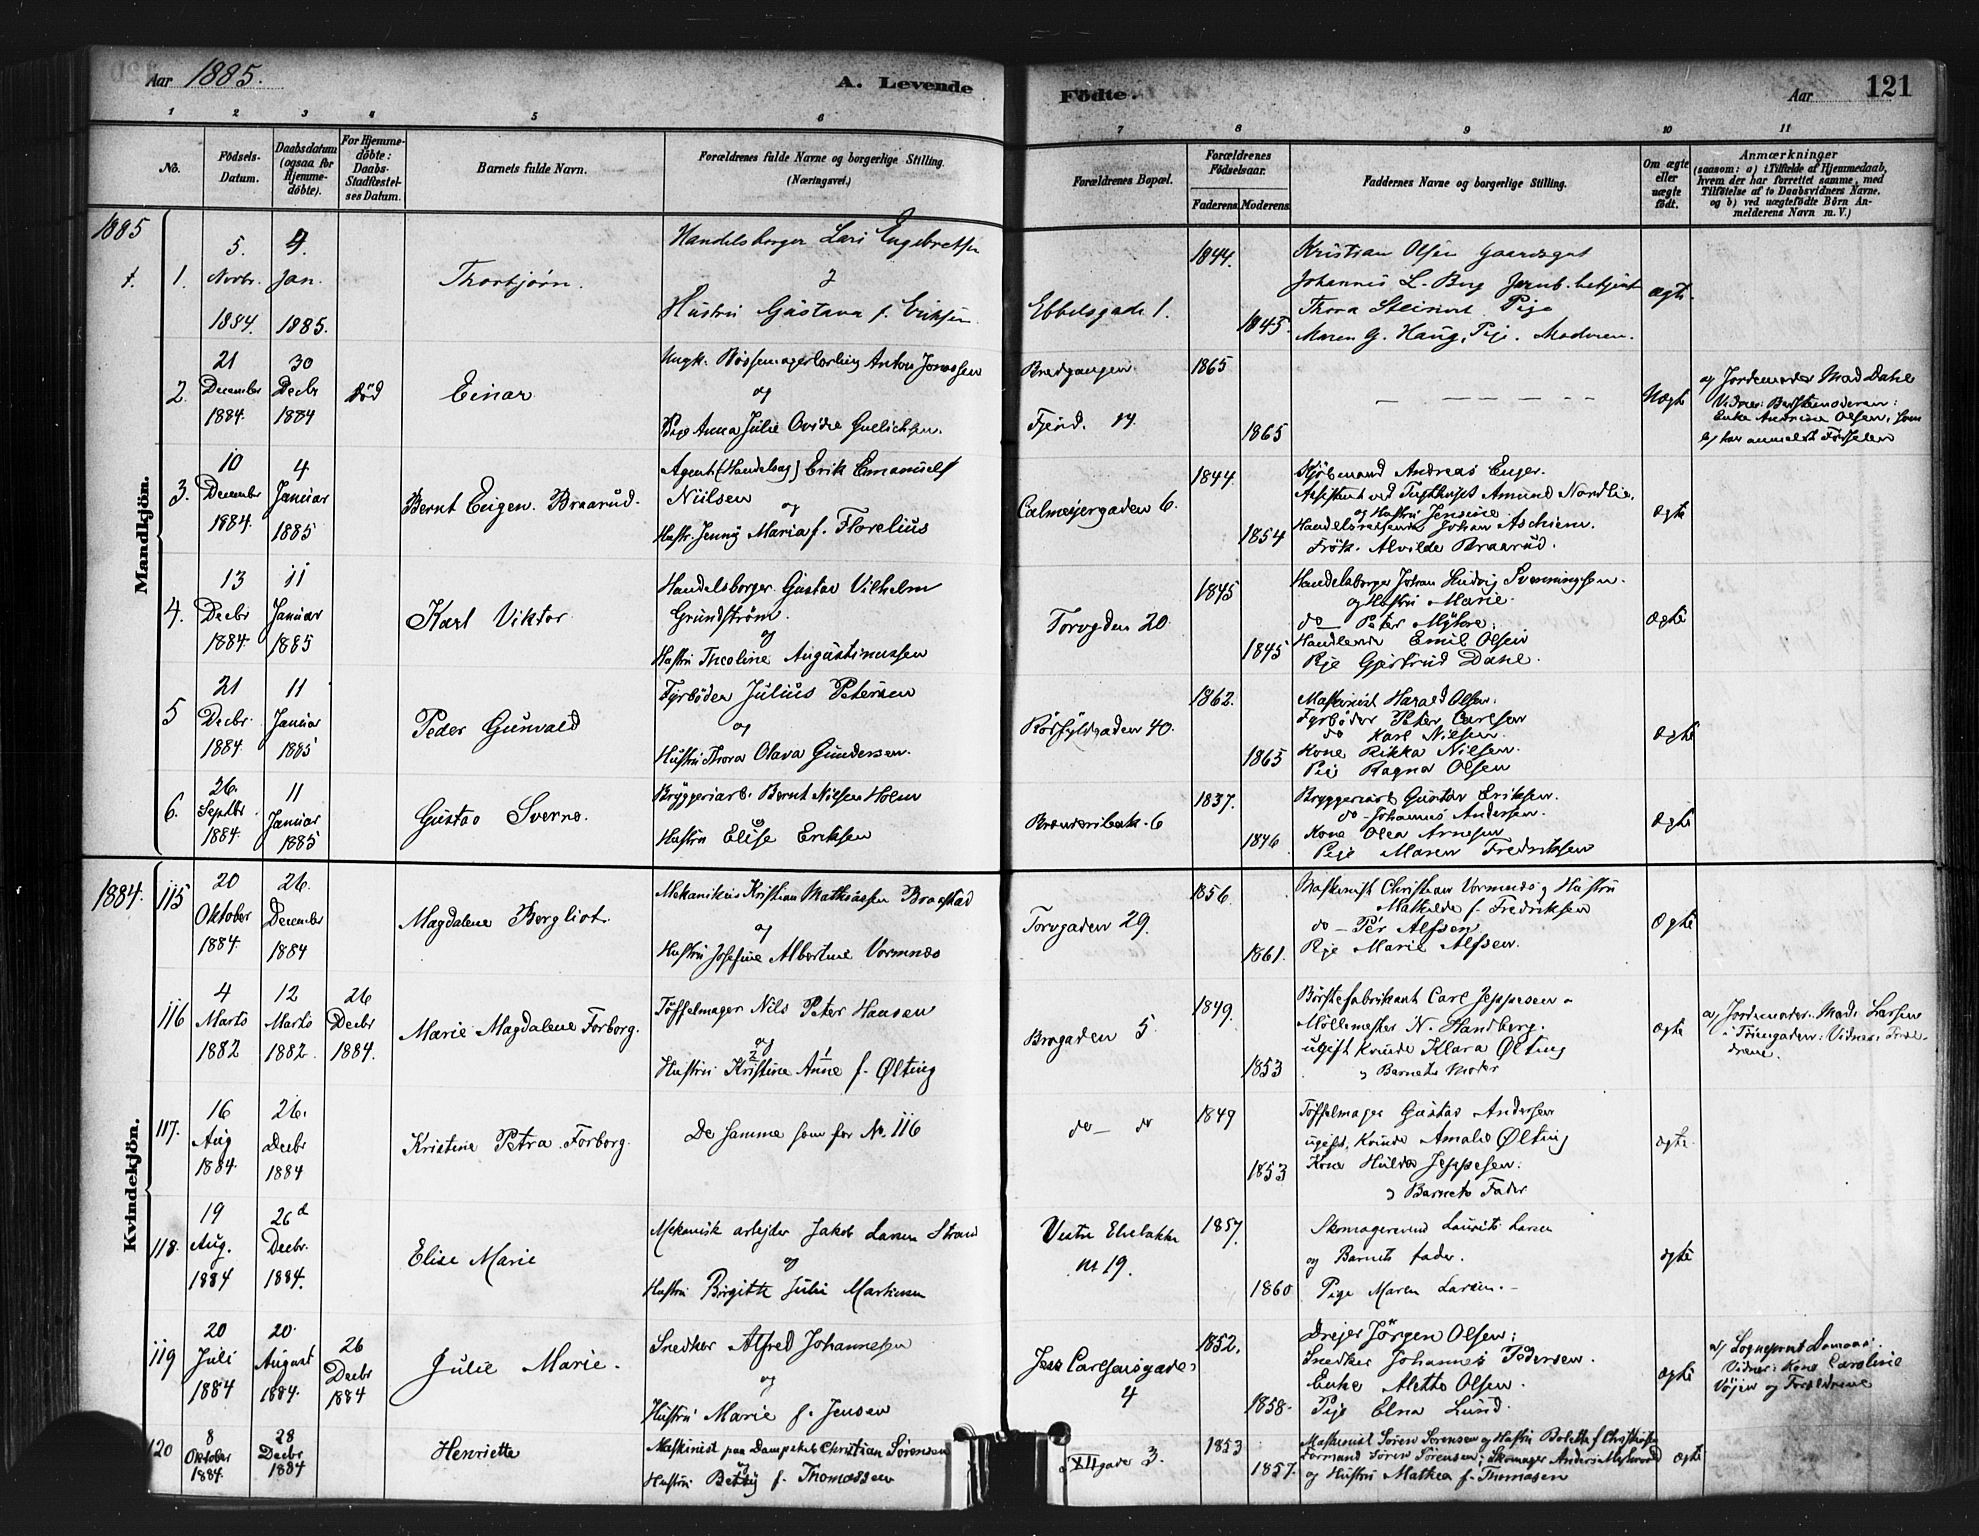 Aar 1885.
A. Levende Födte.
Aar
121
1 2 3 4 5 6 7 8 9 10 11
No.
Födsels-Datum.
Daabsdatum (ogsaa for Hjemme-döbte).
For Hjemme-döbte: Daabs-Stadfæstel-ses Datum.
Barnets fulde Navn.
Forældrenes fulde Navne og borgerlige Stilling. (Næringsvei.)
Forældrenes Bopæl.
Forældrenes Födselsaar.
Faderens. Moderens.
Faddernes Navne og borgerlige Stilling.
Om ægte eller uægte födt.
Anmærkninger
(saasom: a) i Tilfælde af Hjemmedaab, hvem der har forrettet samme, med Tilföielse af to Daabsvidners Navne, og b) ved uægtefödte Börn An-melderens Navn m. V.)
Mandkjön.
1885
1. 5. Novbr. 1884. 4. Jan. 1885.
Thorbjørn.
Handelsborger Lars Engebretsen
Hustru Gustava f. Eriksen
Ebbelsgade 1.
1844. 1845.
Kristian Olsen Gaardsgut
Johannes L. Berg Jernb. betjent
Thora Steinert Pige
Maren G. Haug, Pige. Moderen.
ægte.
2. 21 December 1884. 30 Decbr 1884 Död
Einar
Ungk. Bøssemagerlærling Anton Jonassen
og
Pige Anna Julie Ovidie Gulichsen.
Bredgangen
Fjerd. 14.
1865 1865
Uægte
a) Jordemoder Mad Dahl
Enke Andrine Olsen, som
b) har anmeldt Fødselen
3. 10 December 1884. 4 Januar 1885
Bernt Eugen Braarud.
Agent (Handelsag) Erik Emanuel
Nielsen
og
Hustr. Jenny Maria f. Florelius
Calmeyergaden 6.
1844. 1854
Kjöbmand Andreas Enger.
Assistent ved Tugthuset Amund Nordlie,
og Hustru Jensine
Handelsreisende Johan Aschiem.
Frök. Alvilde Braarud.
ægte
4. 13 Decbr 1884. 11 Januar 1885
Karl Viktor
Handelsborger Gustav Vilhelm
Grundström
og
Hustru Theoline Augustinussen
Torvgden 20
1845 1845
Handelsborger Johan Ludvig Svenningsen.
og Hustru Marie.
do Peter Myhre.
Handlende Emil Olsen
Pige Gjertrud Dahl.
ægte
5 21 Decbr. 1884. 11 Januar 1885
Peder Gunvald
Fyrböder Julius Petersen
og
Hustru Thora Olava Gundersen.
1862. 1865
Maskinist Harald Olsen.
Fyrböder Peter Carlsen
do Karl Nilsen.
Kone Rikka Nilsen.
Pige Ragna Olsen
ægte
6. 26. Septbr. 1884. 11 Januar 1885
Gustav Sverre.
Bryggeriarb. Bernt Nilsen Holm
og
Hustru Elise Eriksen
1837. 1846
Bryggeriarb Gustav Eriksen.
do Johannes Andersen.
Kone Olea Arnesen
Pige Maren Fredriksen
ægte
Kvindekjön.
1884.
115 20 Oktober 1884. 26. December 1884
Magdalene Bergliot.
Mekanikus Kristian Mathiassen Braastad
og
Hustru Josefine Albertine Vormnæs
Torvgaden 29.
1856. 1861.
Maskinist Christian Vormnæs og Hustru
Mathilde f. Fredriksen
do Pér Alfsen
Pige Marie Alfsen.
ægte
116 4 Marts 1882 12 Marts 1882. 26 Decbr 1884.
Marie Magdalene Forborg.
Töffelmager Nils Peter Hansen
og
Hustru Kristine Anne f. Ølting
Brogaden 5.
1849. 1853
Börstefabrikant Carl Jeppesen
Möllemester N. Handberg.
ugift Kvinde Klara Ølting
og Barnets Moder
ægte
a) Jordemoder Mad. Larsen
117. 16 Aug 1884. 26. Decbr 1884
Kristine Petra Forborg.
De samme som for No. 116
do do
1849 1853
Töffelmager Gustav Andersen
ugift Kvinde Amalie Ølting
Kone Hulda Jeppesen.
og Barnets Fader
ægte
118. 19 Aug. 1884 26d Decbr. 1884.
Elise Marie
Mekanisk arbejder Jakob Larsen Strand
og
Hustru Birgitte Julie Martinsen
No 19.
1857. 1860
Laurits Larsen
og Barnets fader.
Pige Maren Larsen.
ægte
119 20 Juli 1884 20. August 1884. 26 Decbr 1884
Julie Marie.
Snedker Alfred Johannesen
og
Hustru Marie f. Jensen
Jens Carlsensgade
4
1852. 1858.
Drejer Jörgen Olsen;
Snedker Johannes Pedersen.
Enke Alette Olsen.
Pige Elna Lund.
ægte
Vidner: Kone Caroline
og Forældrene
120 8 Oktober 1884. 28 Decbr 1884
Henriette
Maskinist paa Dampskib Christian Sörensen
og
Hustru Betty f. Thomassen
XIIgade 3.
1853 1857.
Maskinist Sören Sörensen og Hustru Bolette f. Christensen
Formand Sören Sörensen; Skomager Anders
og Hustru Mathea f. Thomasen
ægte